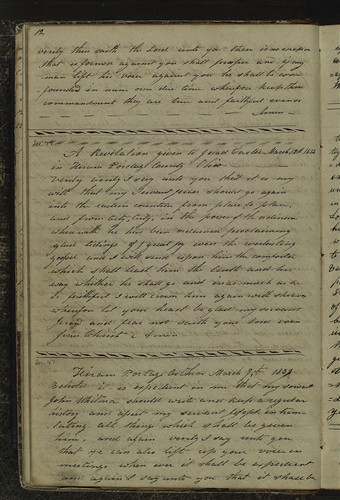 12
verily thus saith the Lord unto you there is no weapon
that is formed against you shall prosper and if any
man lift his voice against you he shall be con
founded in mine own due time wherefore keep these
commandments they are true and faithful even so
Amen
A Revelation given to Jared Carter March 1832
in Hiram Portage County Ohio
Verily verily I say unto you that it is my
will that my servant Jared should go again
into the eastern countries from place to place
and from city to city in the power of the ordination
wherewith he has been ordained proclaiming
glad tidings of great joy even the everlasting
gospel and I will send upon him the comforter
which shall teach him the truth and the
way whither he shall go and inasmuch as he
is faithful I will crown him again with sheaves
wherefore let your heart be glad my servant
Jared and fear not saith your Lord even
Jesus Christ Amen
Hiram Portage Co Ohio March
Behold it is expedient in me that my servant
John Whitmer should write and keep a regular
history and assist my servant Joseph in trans
cribing all things which shall be given
him, and again verily I say unto you
that ye can also lift up your voice in
meetings when ever it shall be expedient
and again I say unto you that it shall be